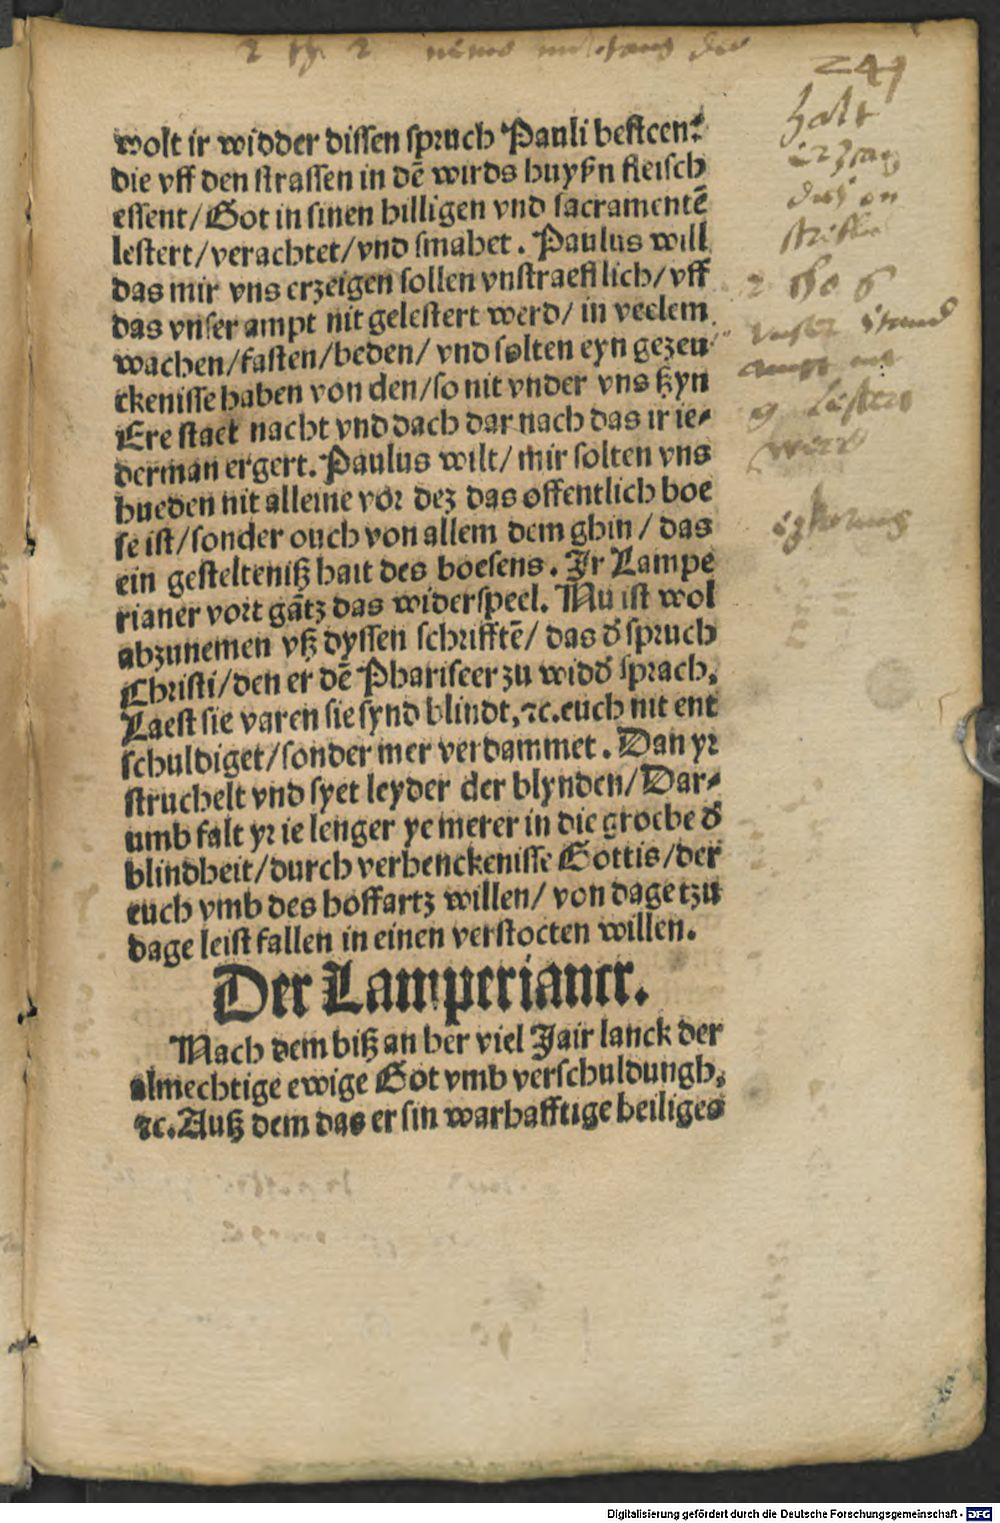 241
wolt ir widder dissen spruch Pauli besteen?
die vff den strassen in dē wirds huyßn fleisch
essent/Got in sinen hilligen vnd sacramentē
lestert/verachtet/vnd smahet. Paulus will
das mir vns erzeigen sollen vnstraeflich/vff
das vnser ampt nit gelestert werd/ in veelem
wachen/fasten/beden/ vnd solten eyn gezeu
ckenisse haben von den/so nit vnder vns syn
Ere staet nacht vnd dach dar nach das ir ie⸗
derman ergert. Paulus wilt/ mir solten vns
hueden nit alleine vor dez das offentlich boe
se ist/sonder ouch von allem dem ghin/ das
ein gestelteniß hait des boesens. Ir Lampe
rianer vort gātz das widerspeel. Nu ist wol
abzunemen vß dyssen schrifftē/ das d̄ spruch
Christi/den er dē Phariseer zu widd̄ sprach,
Laest sie varen sie synd blindt,⁊c.euch nit ent
schuldiget/sonder mer verdammet. Dan yr
struchelt vnd syet leyder der blynden/Dar⸗
umb falt yr ie lenger ye merer in die groebe d̄
blindheit/durch verhenckenisse Gottis/der
euch vmb des hoffartz willen/ von dage tzu
dage leist fallen in einen verstocten willen.
Der Lamperianer.
Nach dem biß an her viel Jair lanck der
almechtige ewige Got vmb verschuldungh,
⁊c.Auß dem das er sin warhafftige heiliges
halt
Digitalisierung gefördert durch die Deutsche Forschungsgemeinschaft - DFG